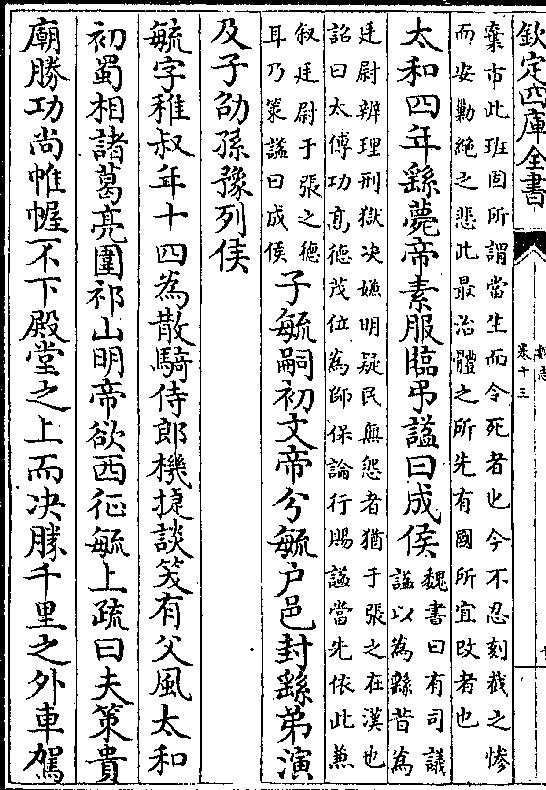 欽定四庫全書
魏志
卷十三
棄市此班固所謂當生而令死者也今不忍刻截之慘
而安勦絶之悲此最治體之所先有國所宜改者也
太和四年繇薨帝素服臨弔謚曰成侯
魏書曰有司議
謚以為繇昔為
廷尉辨理刑獄决嫌明疑民無怨者猶于張之在漢也
詔曰太傅功髙德茂位為師保論行賜謚當先依此兼
叙廷尉于張之德
耳乃策謚曰成侯
子毓嗣初文帝分毓户邑封繇弟演
及子劭孫豫列侯
毓字稚叔年十四為散騎侍郎機捷談笑有父風太和
初蜀相諸葛亮圍祁山明帝欲西征毓上疏曰夫策貴
廟勝功尚帷幄不下殿堂之上而决勝千里之外車駕